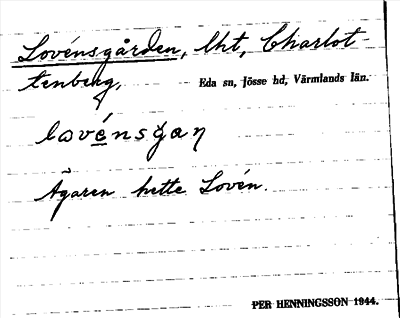 Lovénsgården, lht, Charlot-
tenberg, Eda sn, Jösse hd, Värmlands län.
lovénsgan
Ägaren hette Lovén.
PER HENNINGSSON 1944.